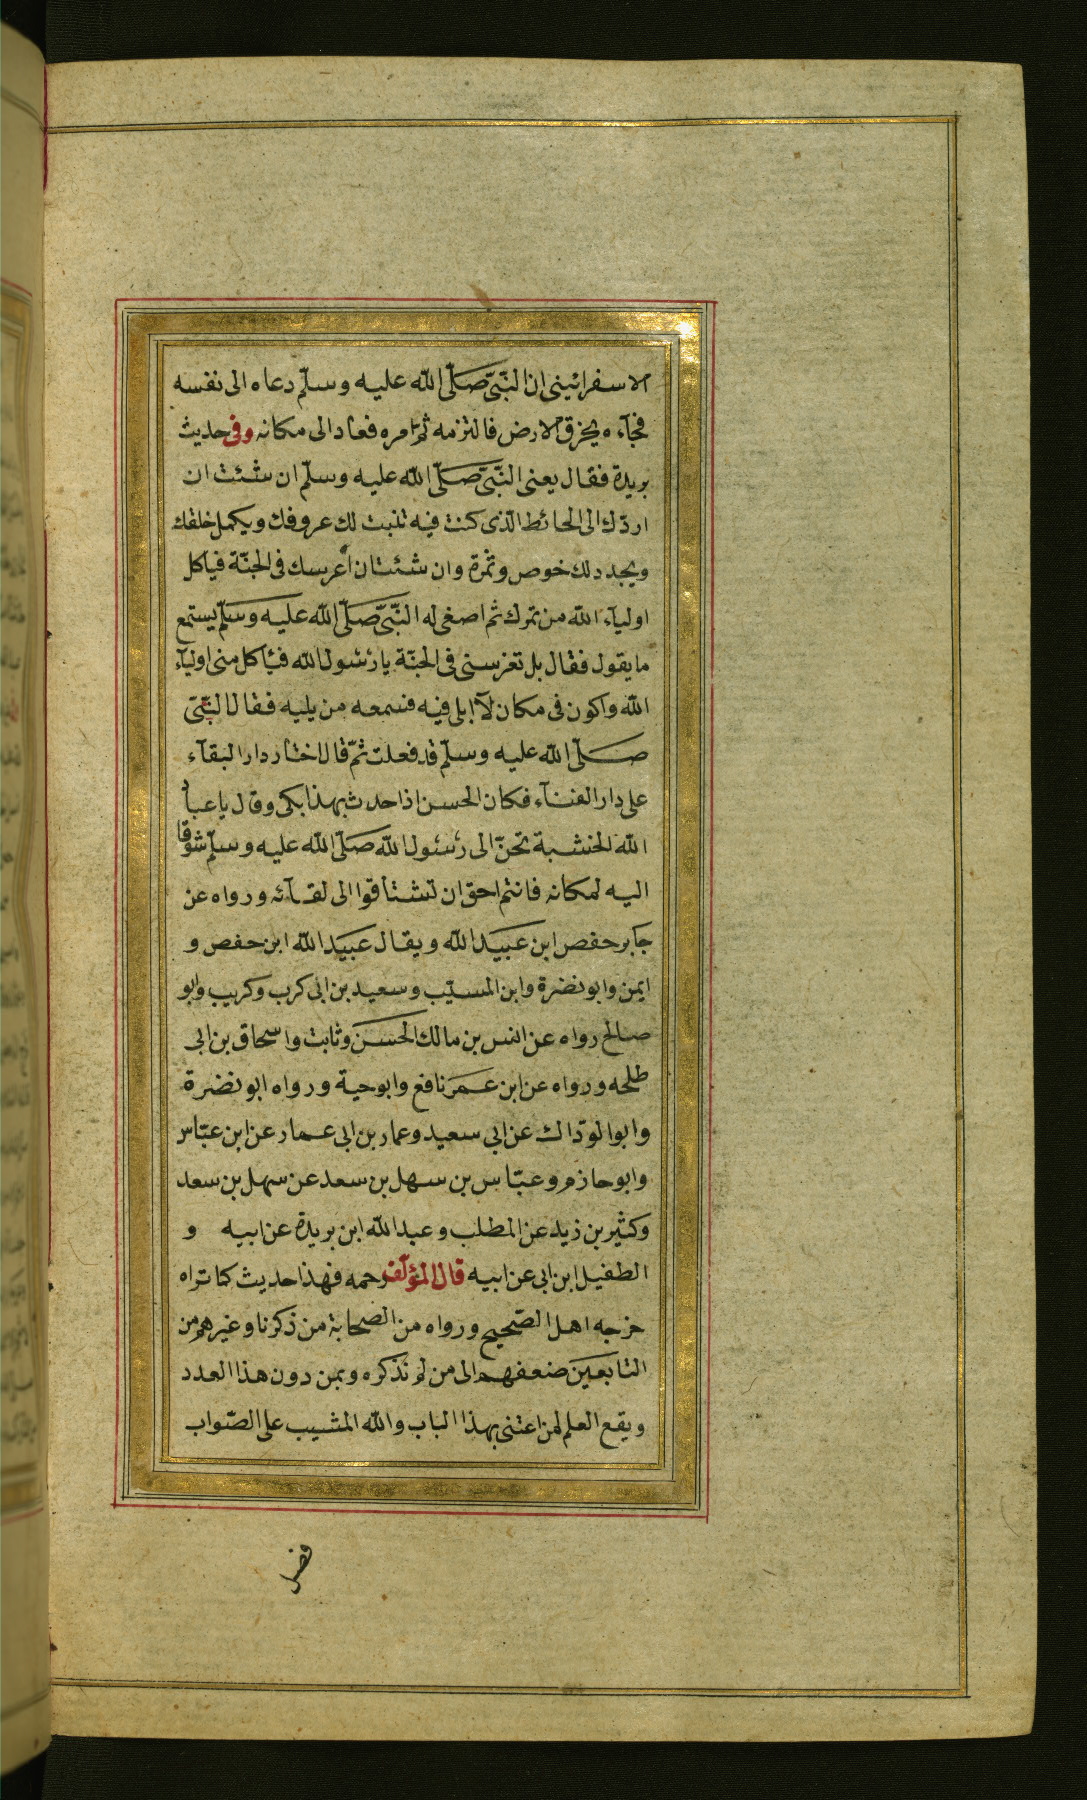 الاسفرائينى ان النّبىّ صَلّى الله عليه وسلّم دعاه الى نفسه
فجآءه يخرق الارض فالتزمه ثم امره فعاد الى مكانه وفى حديث
بريدة فقال يعنى النّبىّ صَلّى الله عليه وسلّم ان شئت ان
اردّك الى الحائط الّذى كنت فيه تنبت لك عروقك ويكمل خلقك
ويجدد لك خوص وثمرة وان شئت ان اغرسك فى الجنّة فيأكل
اوليآء الله من ثمرك ثم اصغى له النّبىّ صَلّى الله عليه وسَلّم يستمع
ما يقول فقال بل تغرسنى فى الجنّة يا رسُول الله فيأكل منى اوليآء
الله واكون فى مكان لآ ابلى فيه فسمعه من يليه فقال النّبىّ
صَلّى الله عليه وسلّم قد فعلت ثمّ قال اختار دار البقآء
على دار الفنآء فكان الحسن اذا حدث بهذا بكى وقال يا عباد
الله الخشبة تحنّ الى رسُول الله صَلّى الله عليه وسلّم شوقا
اليه لمكانه فانتم احق ان تشتاقوا الى لقآئه ورواه عن
جابر حفص ابن عبيد الله ويقال عبيَد الله ابن حفص و
ايمن وابو نضرة وابن المسيّب وسعيد بن ابى كرب وكريب وابو
صالح رواه عن انس بن مالك الحسَن وثابت واسحاق بن ابى
طلحه ورواه عن ابن عمَر نافع وابو حية ورواه ابو نضرة
وابو الودّاك عن ابى سعيد وعمار بن ابى عمار عن ابن عبّاس
وابو حازم وعبّاس بن سهل بن سعد عن سهل بن سعد
وكثير بن زيد عن المطلب وعبد الله ابن بريدة عن ابيه و
الطفيل ابن ابى عن ابيه قال المؤلف رحمه فهذا حديث كما تراه
خرجه اهل الصّحيح ورواه من الصحابة من ذكرنا وغيرهم من
التابعيَن ضعفهم الى من لم نذكره وبمن دون هذا العدد
ويقع العلم لمن اعتنى بهذا الباب والله المثيب على الصّواب
فصل